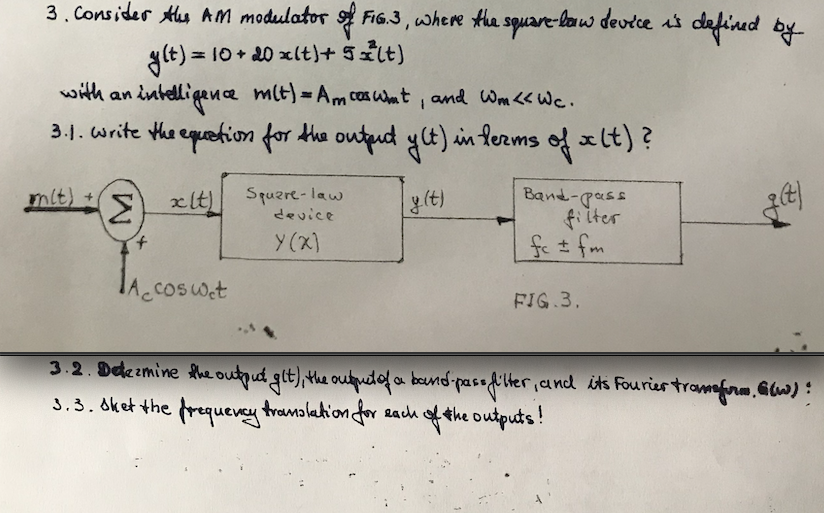 3. Consider the AM modulator of FIG.3, where the square-law device is defined by
y(t) = 10 + 20 x(t) + 5 x²(t)
with an intelligence m(t) = Am cos ωmt, and ωm << ωc.
3.1. Write the equation for the output y(t) in terms of x(t)?
m(t) +
Σ
x(t)
Square-law
device
Y(x)
y(t)
Band-pass
filter
fc ± fm
g(t)
+
Ac cos ωct
FIG.3.
3.2. Determine the output g(t), the output of a band-pass filter, and its Fourier transform, G(ω):
3.3. Sket the frequency translation for each of the outputs!